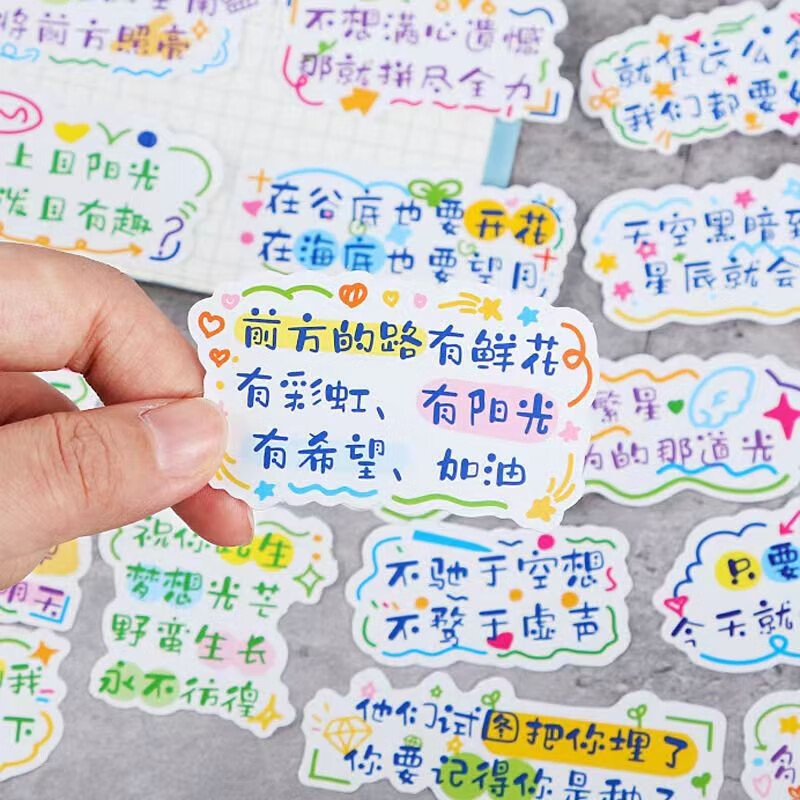 将前方照亮
不想满心遗憾
那就拼尽全力
就凭这么
我们都要
上且阳光
泼且有趣
在谷底也要开花
在海底也要望月
天空黑暗到
星辰就会
前方的路有鲜花
有彩虹、有阳光
有希望、加油
繁星
的那道光
祝你此生
梦想光芒
野蛮生长
永不彷徨
明天
不驰于空想
不骛于虚声
只要
今天就
我
下
他们试图把你埋了
你要记得你是种子